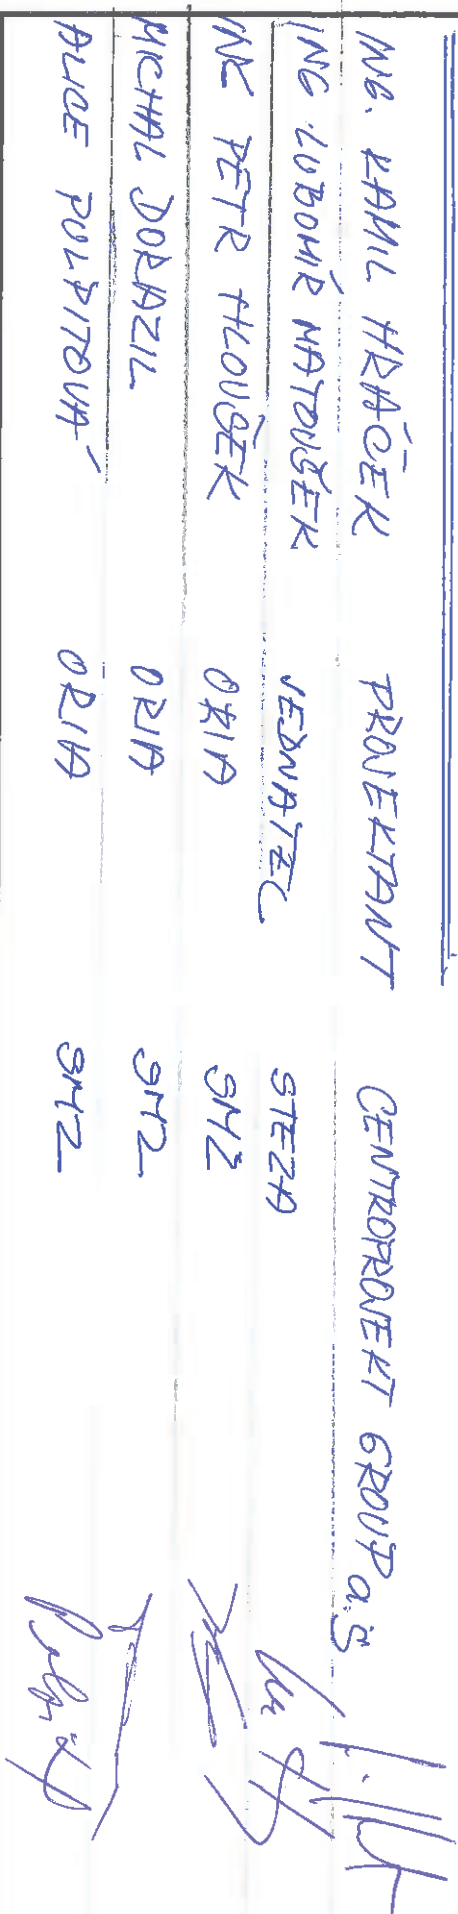 ING. KAMIL HRÁČEK PROJEKTANT CENTROPROJEKT GROUP a.s
ING LUBOMÍR MATOUŠEK JEDNATEL STEZA
ING PETR HLOUŠEK ORIA SMZ
MICHAL DORAZIL ORIA SMZ
ALICE PULPITOVÁ ORIA SMZ